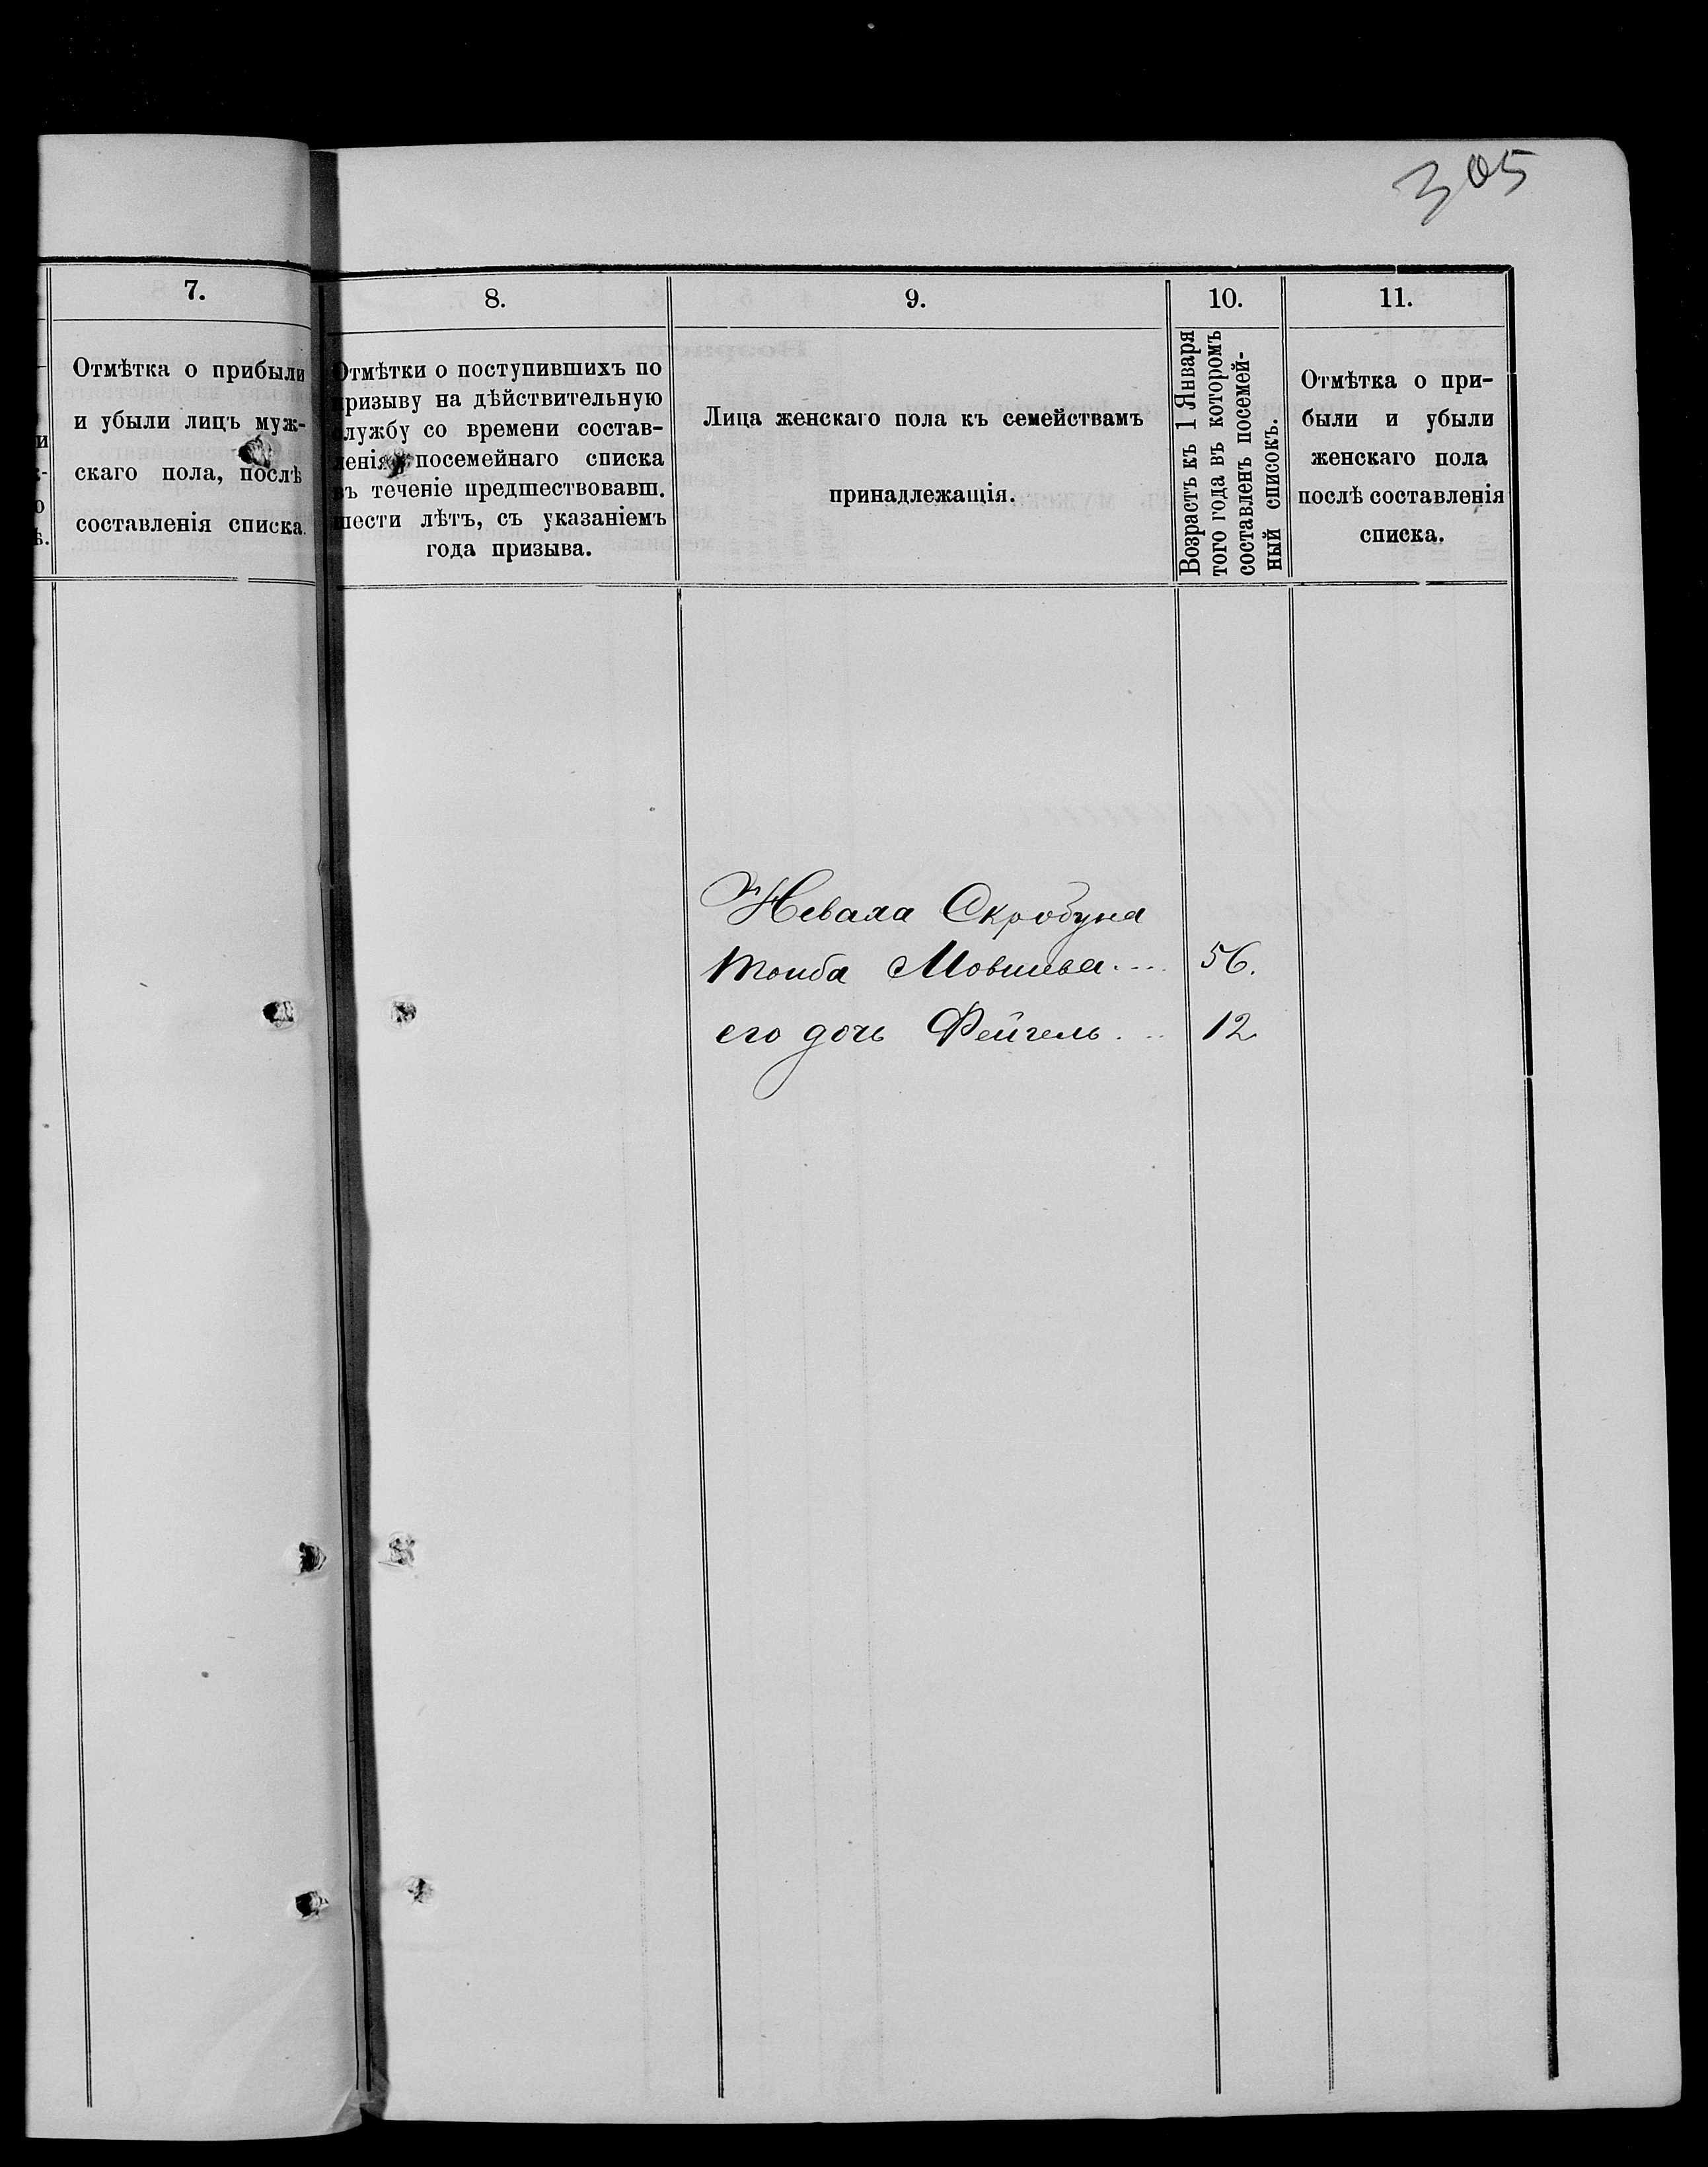 305
7.
Отмѣтка о прибыли
и убыли лицъ муж-
скаго пола, послѣ
составленія списка.
8.
Отмѣтки о поступившихъ по
призыву на дѣйствительную
службу со времени состав-
ленія посемейнаго списка
въ теченіе предшествовавш.
шести лѣтъ, съ указаніемъ
года призыва.
9.
Лица женскаго пола къ семействамъ
принадлежащія.
10.
Возрастъ къ 1 Января
того года въ которомъ
составленъ посемей-
ный списокъ.
11.
Отмѣтка о при-
были и убыли
женскаго пола
послѣ составленія
списка.
Скробуна
Мовшева.... 56.
его дочь Фейгель... 12